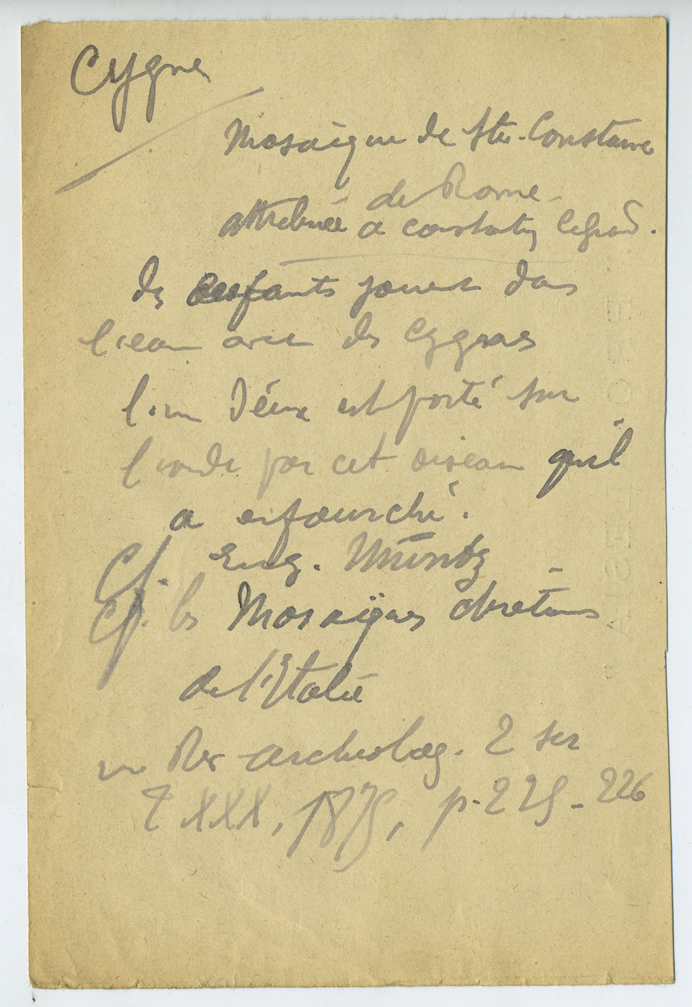 Cygne
Mosaïque de Ste-Constance
de Rome.
attribuée à Constantin le grd.
des enfants jouent dans
l'eau avec des Cygnes
l'un d'eux est porté sur
l'onde par cet oiseau qu'il
a enfourché.
Cf. Eug. Müntz
Cf. les Mosaïques chrétiens
de l'Italie
in Rev archeolog. 2 ser
T XXX, 1875, p. 225-226